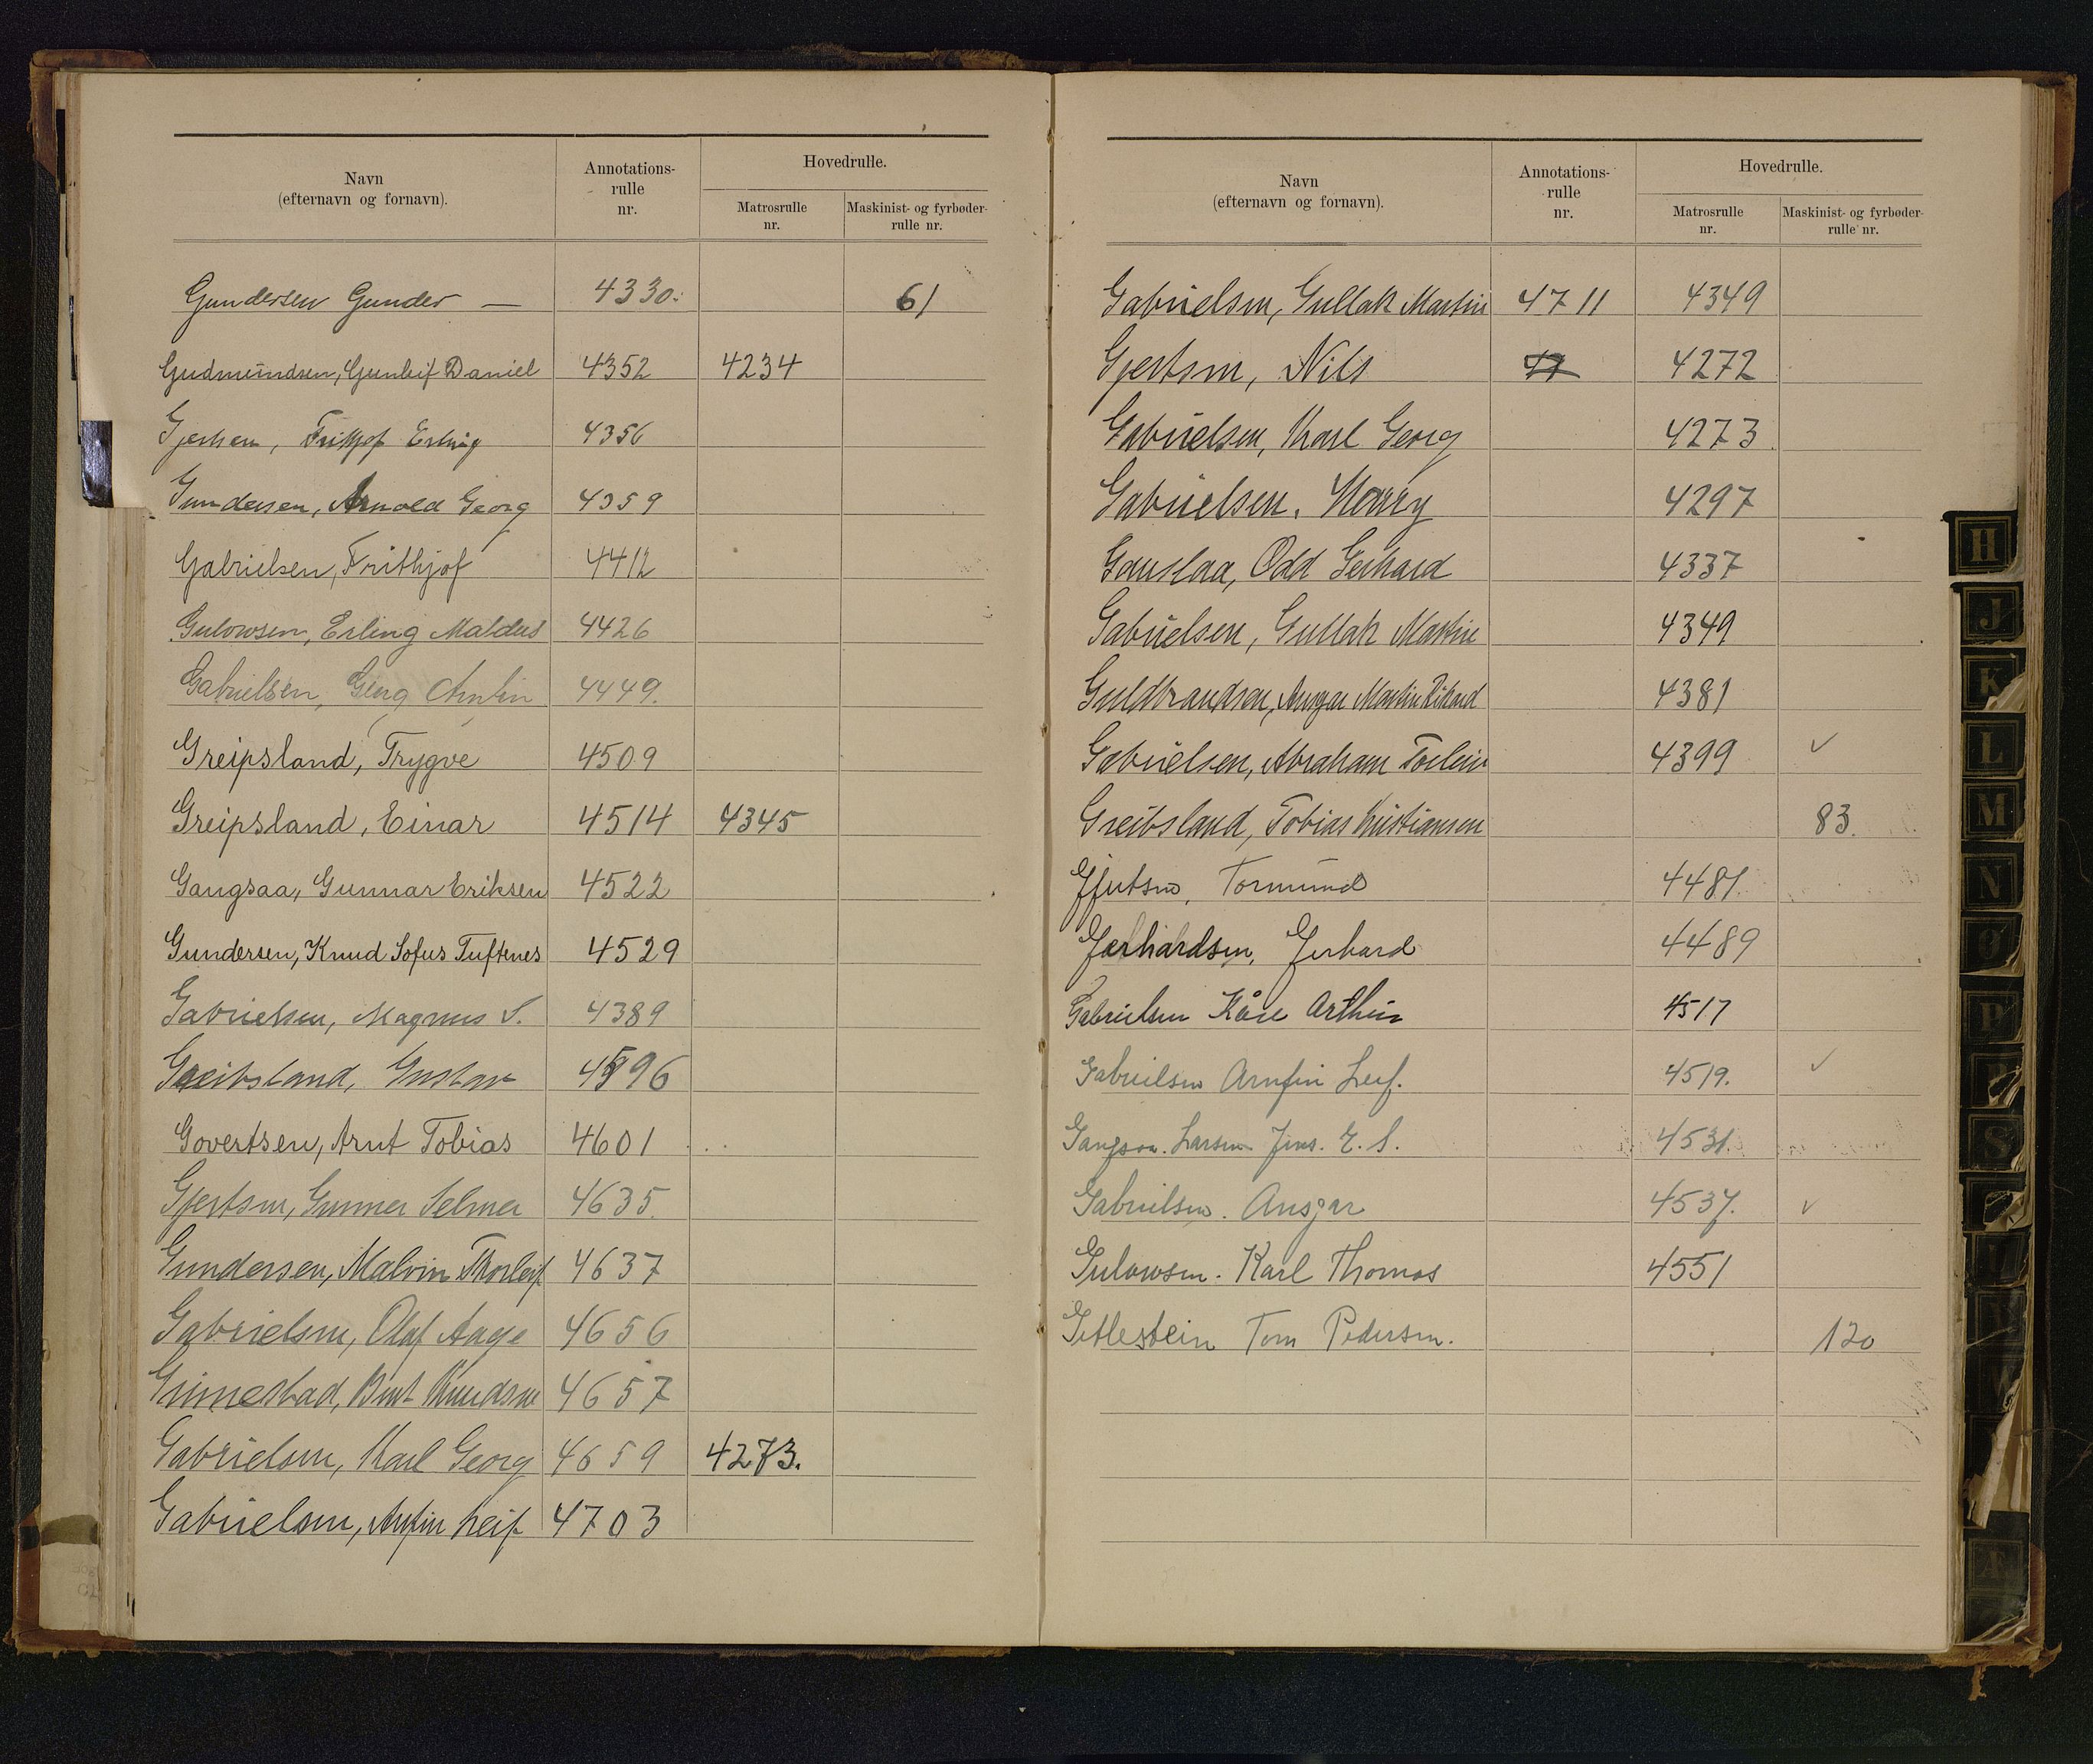 Navn
(efternavn og fornavn).
Annotations-
rulle
nr.
Hovedrulle.
Matrosrulle
nr.
Maskinist- og fyrbøder-
rulle nr.
Gundersen Gunder — 4330. 61
Gudmundsen, Gunleif Daniel 4352 4234
Gjertsen, Frithjof Erling 4356
Gundersen, Arnold Georg 4359
Gabrielsen, Frithjof 4412
Gulowsen, Erling Maldus 4426
Gabrielsen, Georg 4449.
Greipsland, Trygve 4509
Greipsland, Einar 4514 4345
Gangsaa, Gunnar Eriksen 4522
Gundersen, Knud Sofus Tuftenes 4529
Gabrielsen, Magnus S. 4389
Greibsland, Gustav 4596
Govertsen, Arnt Tobias 4601
Gjertsen, Gunnar Selmer 4635.
Gundersen, Malvin Thorleif 4637
Gabrielsen, Olaf Aage 4656
Grimestad, Bent Knudsen 4657
Gabrielsen, Karl Georg 4659 4273.
Gabrielsen, Arnfin Leif 4703
Navn
(efternavn og fornavn).
Annotations-
rulle
nr.
Hovedrulle.
Matrosrulle
nr.
Maskinist- og fyrbøder-
rulle nr.
Gabrielsen, Gullak Martin 4711 4349
Gjertsen, Nils 47 4272
Gabrielsen, Karl Georg 4273
Gabrielsen, Harry 4297
Gauslaa, Odd Gerhard 4337
Gabrielsen, Gullak Martin 4349
Guldbrandsen, Ansgar Martin Rikard 4381
Gabrielsen, Abraham Torleiv 4399 ✓
Greibsland, Tobias Kristiansen 83.
Gjertsen, Tormund 4481.
Gerhardsen, Gerhard 4489
Gabrielsen Kåre Arthur 4517
Gabrielsen Arnfin Leif. 4519. ✓
Gangsaa. Larsen Jens. E. S. 4531.
Gabrielsen. Ansgar 4537. ✓
Gulowsen. Karl Thomas 4551
Gitlestein Tom Pedersen. 120
H
J
K
L
M
N
O
P
R
S